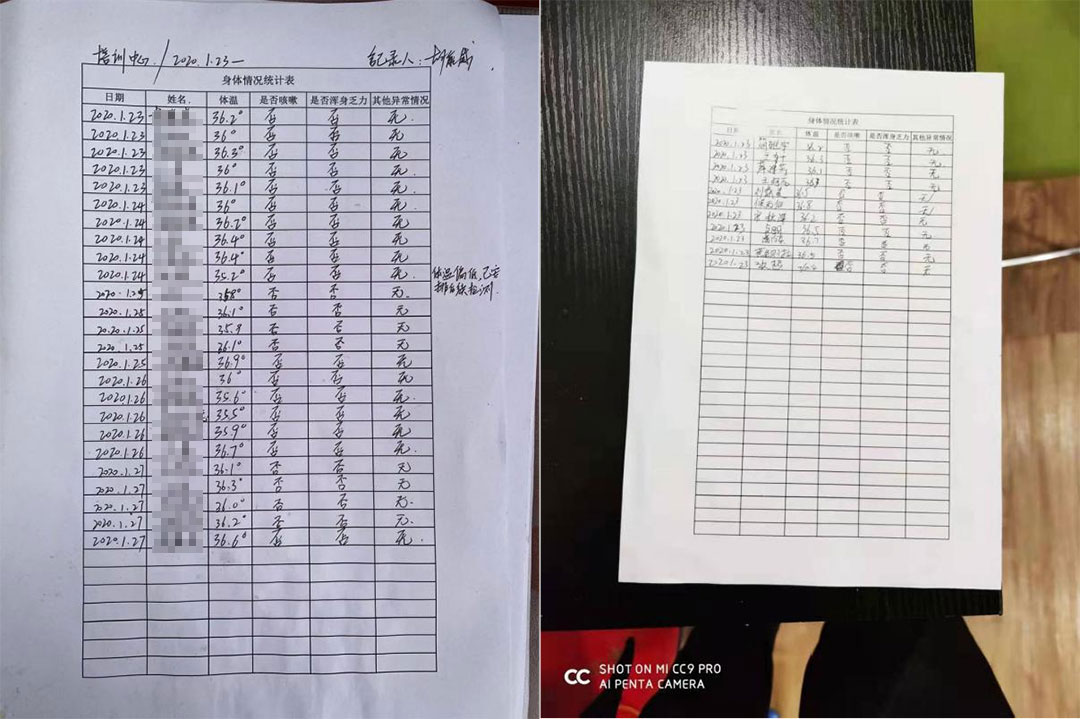 培训中心/2020.1.23一 记录人:
身体情况统计表
日期 姓名 体温 是否咳嗽 是否浑身乏力 其他异常情况
2020.1.23 36.2° 否 否 无.
2020.1.23 36° 否 否 无.
2020.1.23 36.3° 否 否 无.
2020.1.23 36° 否 否 无.
2020.1.23 36.1° 否 否 无.
2020.1.24 36° 否 否 无.
2020.1.24 36.2° 否 否 无.
2020.1.24 36.4° 否 否 无.
2020.1.24 36.4° 否 否 无.
2020.1.24 35.2° 否 否 无. 体温偏低,已安
排后续检测.
2020.1.25 否 否 无.
2020.1.25 36.1° 否 否 无
2020.1.25 35.9 否 否 无
2020.1.25 36.1° 否 否 无
2020.1.25 36.9° 否 否 无
2020.1.26 36° 否 否 无
2020.1.26 35.6° 否 否 无.
2020.1.26 35.5° 否 否 无
2020.1.26 35.9° 否 否 无.
2020.1.26 36.7° 否 否 无.
2020.1.27 36.1° 否 否 无
2020.1.27 36.3° 否 否 无
2020.1.27 36.0° 否 否 无.
2020.1.27 36.2° 否 否 无.
2020.1.27 36.6° 否 否 无.
身体情况统计表
日期 姓名 体温 是否咳嗽 是否浑身乏力 其他异常情况
2020.1.23 36.2 否 否 无
2020.1.23 36.3 否 否 无
2020.1.23 36.1 否 否 无
2020.1.23 否 否 无
2020.1.23 36.5 否 否 无
2020.1.23 36.8 否 否 无
2020.1.23 36.2 否 否 无
2020.1.23 36.5 否 否 无
2020.1.23 36.7 否 否 无
2020.1.23 36.5 否 否 无
2020.1.23 否 否 无
SHOT ON MI CC9 PRO
AI PENTA CAMERA